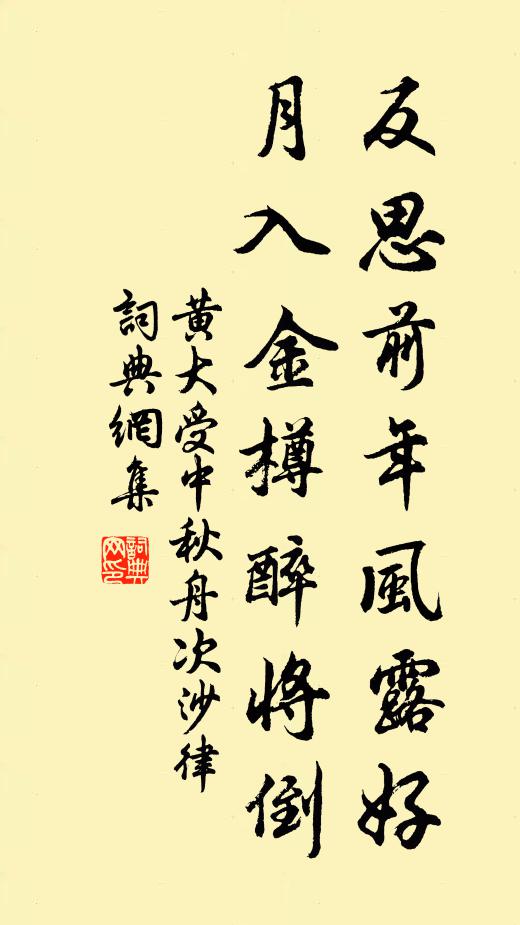 反思前年風露好
月入金樽醉將倒
黄大受中秋舟次沙律
詞典網集
詞典網印